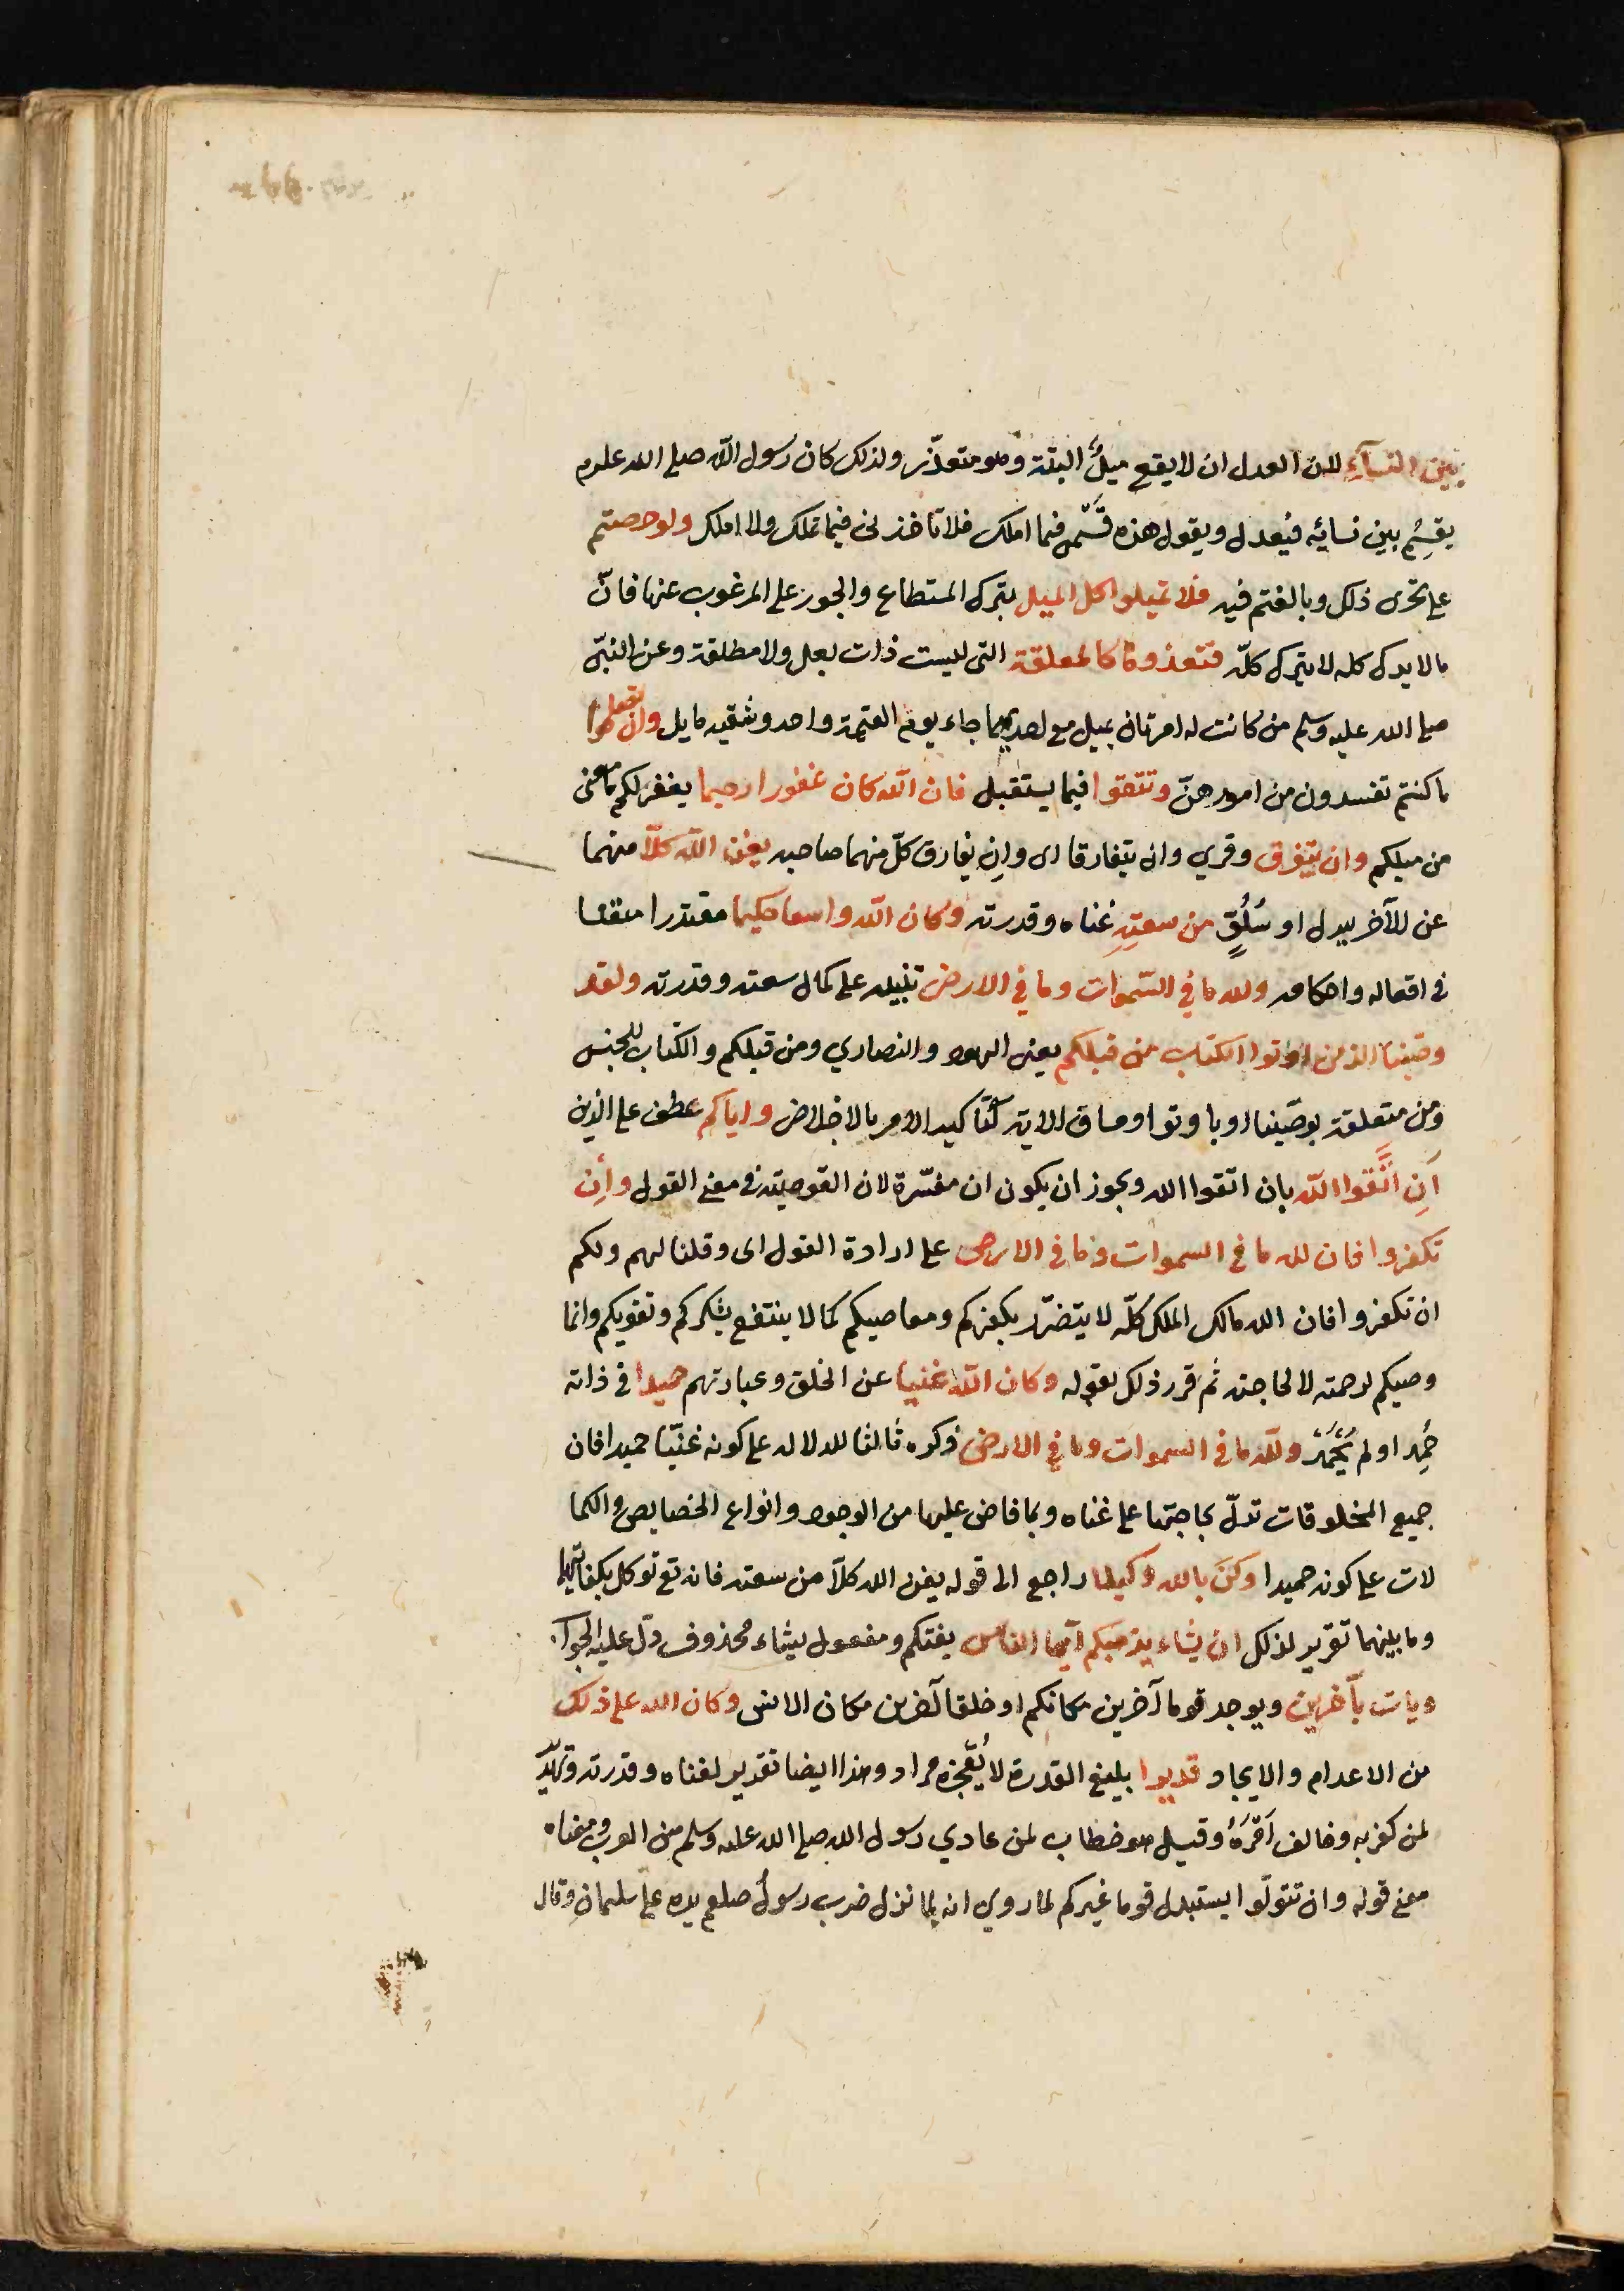 بين النسآءِ لان العدل ان لا يقع ميلٌ البتة وهو متعذّر ولذلك كان رسول الله صلى الله علىه وم
يقسِمُ بين نسائه فيُعدل ويقول هذه قَسْمى فيما املك فلا تاخذنى فيما تملك ولا املك ولو حرصتم
على تحرّى ذلك وبالغتم فيه فلا تميلوا كل الميل بترك المستطاع والجور على المرغوب عنها فانّ
ما لا يدرك كله لا يترك كلّه فتعذروها كالمعلقة التى ليست ذات بعل ولا مطلقة وعن النبىّ
صلى الله عليه وسلم من كانت له امرتان يميل مع احديهما جاء يوم القيمة واحد وشقيه مايل وان تصلحوا
ما كنتم تفسدون من امورهنّ وتتقوا فيما يستقبل فان الله كان غفورا رحيما يغفر لكم ما مضى
من ميلكم وان يتفرق وقري وان يتفارقا اى وانِ يفارق كلّ منهما صاحبه يغن الله كلّا منهما
عن الآخر ببدل او سُلُوٍّ من سعتِهِ غناه وقدرته وكان الله واسعا حكيما مقتدرا متقنا
فى افعاله واحكامه ولله ما في السّموات وما في الارض تنبيه على كمال سعته وقدرته ولقد
وصّينا الذين اوتوا الكتاب من قبلكم يعنى اليهود والنصاري ومن قبلكم والكتاب للجنس
ومن متعلقة بوصّينا او باوتوا ومساق الاية لتاكيد الامر بالاخلاص واياكم عطف على الذين
اَنِ اتَّقوا الله بان اتقوا الله ويجوز ان يكون ان مفسّرة لان التوصية في معنى القول وأِن
تكفروا فان لله ما في السموات وما في الارض على ارادة القول اى وقلنا لهم ولكم
ان تكفروا فان الله مالك الملك كلّه لا يتضرّر بكفركم ومعاصيكم كما لا ينتفع بشكركم وتقويكم وانما
وصيكم لرحمته لا لحاجته ثم قرر ذلك بقوله وكان الله غنيا عن الخلق وعبادتهم حميدا في ذاته
حُمِد او لم يُحْمَدْ ولله ما في السموات وما في الارض ذكره ثالثا للدلاله على كونه غنيّا حميدا فان
جميع المخلوقات تدلّ بحاجتها على غناه وبما فاض عليها من الوجود وانواع الخصايص والكما
لات على كونه حميدا وكفى بالله وكيلا راجع الى قوله يغن الله كلّا من سعته فانه تع توكل بكفايتهما
وما بينهما تقرير لذلك ان يشاء يذهبكم ايها الناس يفنكم ومفعول يشاء محذوف دلّ عليه الجوا
ويات بآخرين ويوجد قوما آخرين مكانكم او خلقا آخرين مكان الانس وكان الله على ذلك
من الاعدام والايجاد قديرا بليغ القدرة لا يُعْجزه مراد وهذا ايضا تقدير لغناه وقدرته وتهديد
لمن كفر به وخالف اَمْرَهُ وقيل هو خطاب لمن عادي رسول الله صلى الله علىه وسلم من العرب ومعناه
معنى قوله وان تتولّوا يستبدل قوما غيركم لما روي انه لما نزل ضرب رسولُ صلعم يده على سلمانِ وقال